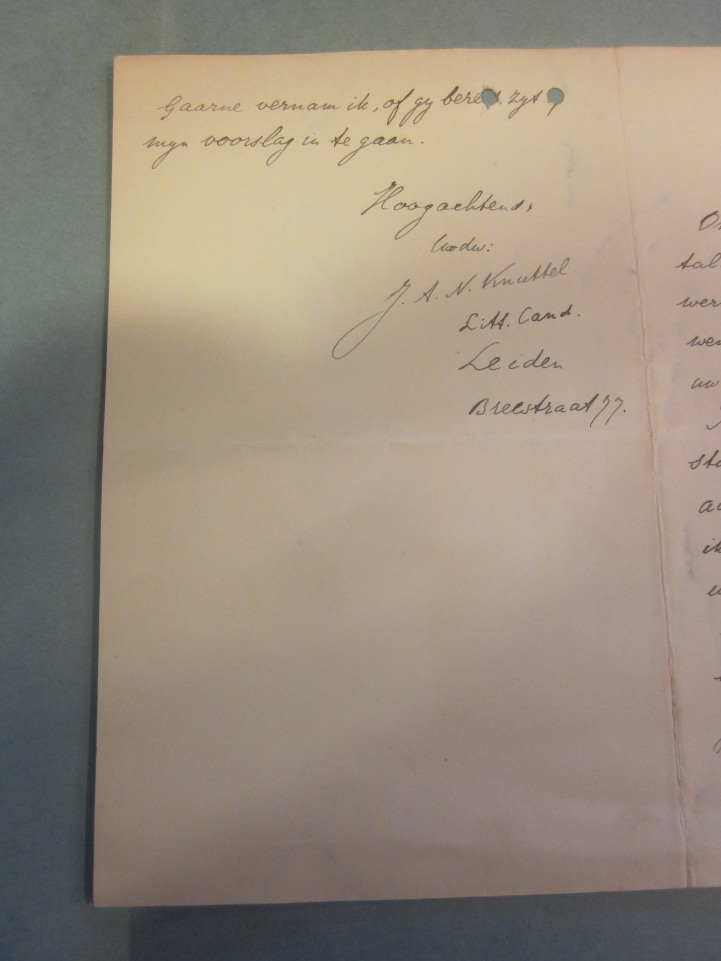 Gaarne vernam ik, of gy bereid zyt op
myn voorslag in te gaan.
Hoogachtend,
Uwdw:
J. A. N. Knuttel
Litt. Cand.
Leiden
Breestraat 77.
tal
wer
ik